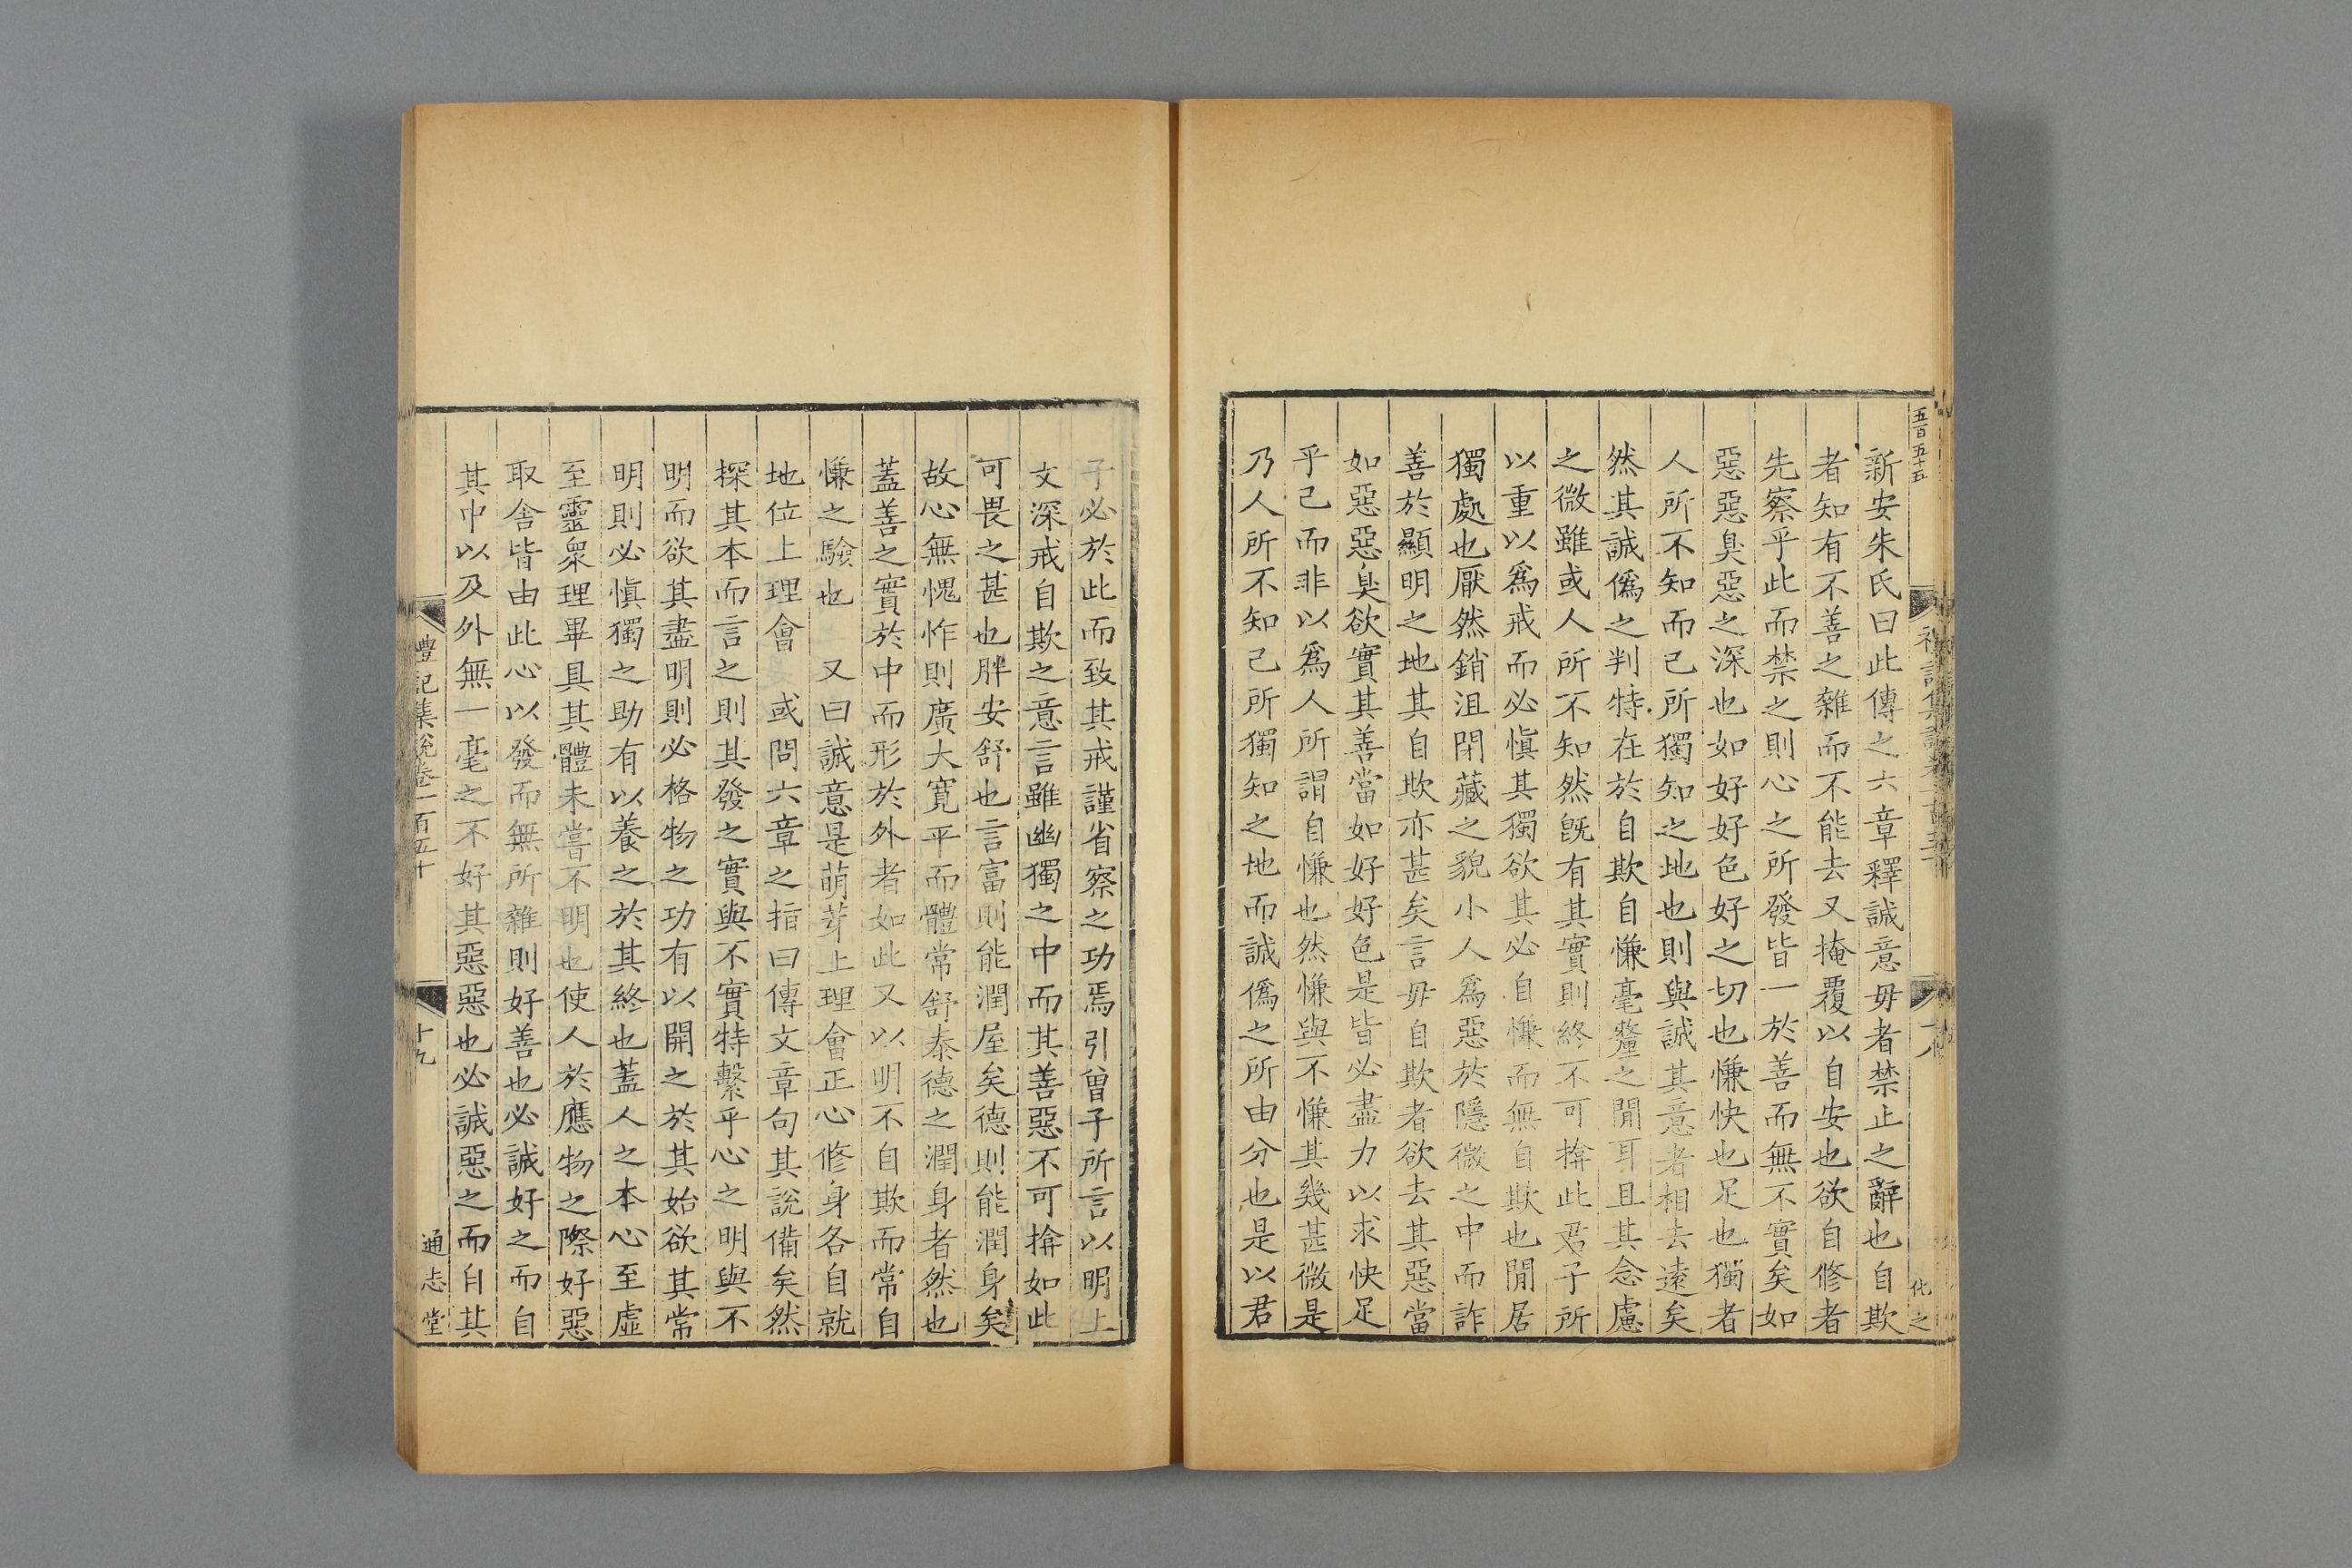 五百五十五
新安朱氏曰此傳之六章釋誠意毋者禁止之辭也自欺
者知有不善之雜而不能去又掩覆以自安也欲自修者
先察乎此而禁之則心之所發皆一於善而無不實矣如
惡惡臭惡之深也如好好色好之切也慊快也足也獨者
人所不知而己所獨知之地也則與誠其意者相去遠矣
然其誠僞之判特在於自欺自慊毫釐之閒耳且其念慮
之微雖或人所不知然旣有其實則終不可揜此君子所
以重以爲戒而必愼其獨欲其必自慊而無自欺也閒居
獨處也厭然銷沮閉藏之貌小人爲惡於隱微之中而詐
善於顯明之地其自欺亦甚矣言毋自欺者欲去其惡當
如惡惡臭欲實其善當如好好色是皆必盡力以求快足
乎己而非以爲人所謂自慊也然慊與不慊其幾甚微是
乃人所不知己所獨知之地而誠僞之所由分也是以君
子必於此而致其戒謹省察之功焉引曾子所言以明上
文深戒自欺之意言雖幽獨之中而其善惡不可揜如此
可畏之甚也胖安舒也言富則能潤屋矣德則能潤身矣
故心無愧怍則廣大寬平而體常舒泰德之潤身者然也
蓋善之實於中而形於外者如此又以明不自欺而常自
慊之驗也 又曰誠意是萌芽上理會正心修身各自就
地位上理會 或問六章之指曰傳文章句其說備矣然
探其本而言之則其發之實與不實特繫乎心之明與不
明而欲其盡明則必格物之功有以開之於其始欲其常
明則必愼獨之助有以養之於其終也蓋人之本心至虛
至靈衆理畢具其體未嘗不明也使人於應物之際好惡
取舍皆由此心以發而無所雜則好善也必誠好之而自
其中以及外無一毫之不好其惡惡也必誠惡之而自其
禮記集說卷一百五十
十九
通志堂